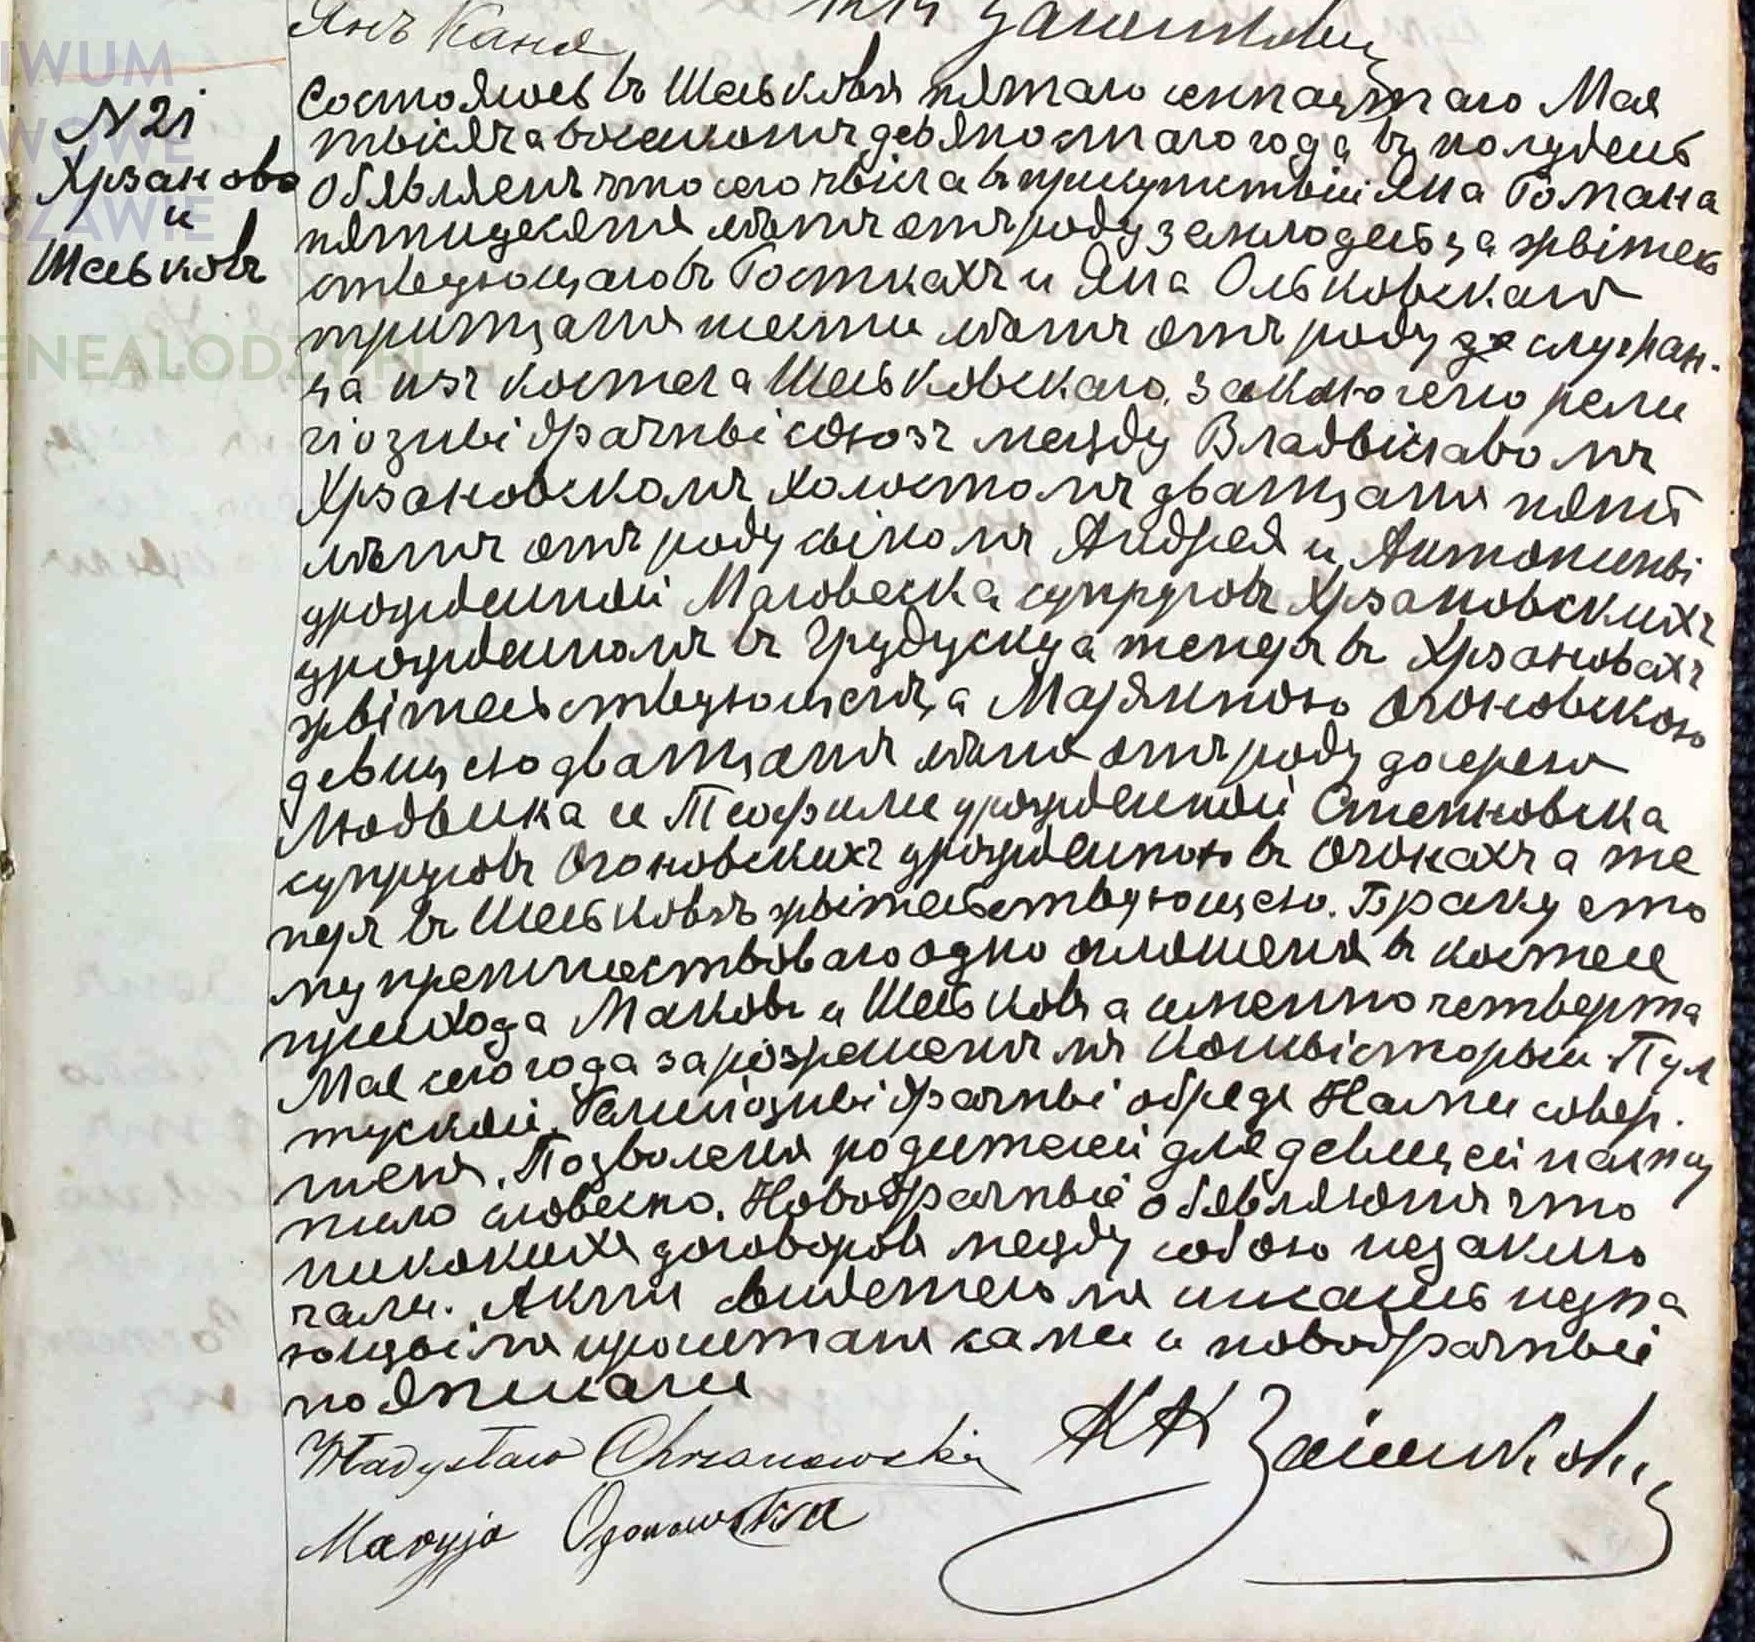 Янъ Каня
N 21
Хрзаново
и
Шельковъ
Состоялось въ Шельковѣ пятаго Мая
тысяча восемсотъ девяностаго года въ полудень
Объявляемъ что сего числа въ присутствіи Яна Романа
пятидесяти лѣтъ отъ роду земледельца жытель
ствующаго въ Росткахъ и Яна Ольковскаго
тритцати шести лѣтъ отъ роду служан-
ца изъ костела Шельковскаго, заключено рели
гіозны брачны союзъ между Владыславомъ
Хрзановскомъ, холостомъ дватцати пять
лѣтъ отъ роду сыномъ Андрея и Антонины
урожденной супруговъ Хрзановскихъ
урожденномъ въ Грудуску а теперъ въ Хрзановахъ
жытельствующемъ, а Марянною Огоновскою
девицею дватцати лѣтъ отъ роду дочерею
Людвика и Теофили урожденной
супруговъ Огоновскихъ урожденною въ Огонахъ а те
перъ въ Шельковѣ жытельствующею. Браку ето
му препшествовало одно оглошеня въ костеле
прихода Маковъ и Шельковъ а именно четверта
Мая сего года за розрешенямъ Консысторыи Пул
туской. Религіозны брачны обреде Нами совер-
шеня. Позволеня родителей для девицей наступ
пило словесно. Новобрачные обявляютъ что
никакихъ договоровъ между собою незаклю
чали. Актъ свидетелямъ писать незна
ющымъ прочитанъ сами и новобрачные
подписали
Władysław Chrzanowski
Maryja Ogonowska